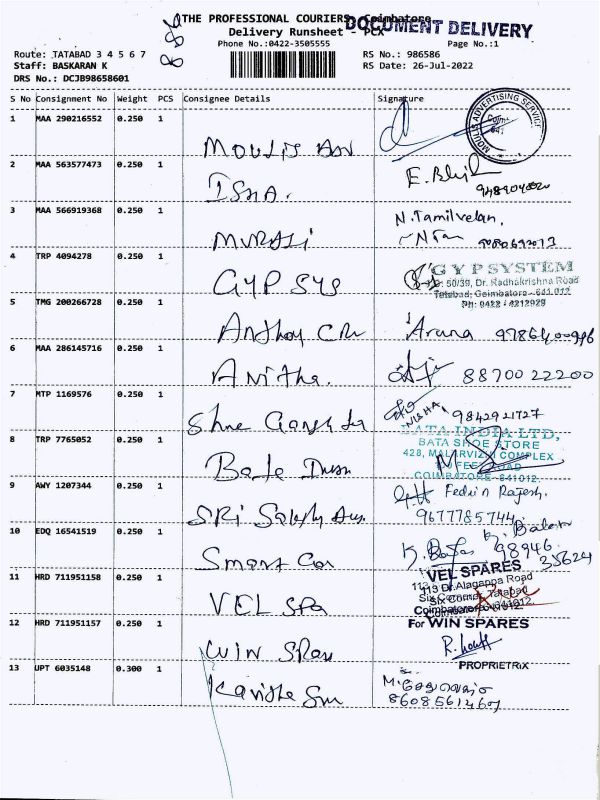 THE PROFESSIONAL COURIERS, Coimbatore
DOCUMENT DELIVERY
Delivery Runsheet - PCX
Phone No.:0422-3505555
Page No.:1
Route: TATABAD 3 4 5 6 7
RS No.: 986586
Staff: BASKARAN K
RS Date: 26-Jul-2022
DRS No.: DCJB98658601
S No Consignment No Weight PCS Consignee Details Signature
1 MAA 290216552 0.250 1
MOULIS ADVERTISING SERVICE
2 MAA 563577473 0.250 1
ISHA.
3 MAA 566919368 0.250 1
MURALI
N. Tamilvelan,
4 TRP 4094278 0.250 1
GYP SYS
GYP SYSTEM
50/39, Dr. Radhakrishna Road
Tatabad, Coimbatore - 641 012
Ph: 0422 - 4212929
5 TMG 200266728 0.250 1
Anthony
Aruna
6 MAA 286145716 0.250 1
Anitha.
88700 22200
7 MTP 1169576 0.250 1
Shree Ganesh
NISHA
9842921727
8 TRP 7765052 0.250 1
Bata
BATA INDIA LTD,
BATA SHOE STORE
428, MALARVIZHI COMPLEX
COIMBATORE - 641012.
9 AWY 1207344 0.250 1
SRI
Rajesh.
9677785744
10 EDQ 16541519 0.250 1
Smart
98946
35624
11 HRD 711951158 0.250 1
VEL Spa
VEL SPARES
113 Dr.Alagappa Road
Six Corner, Tatabad
Coimbatore-641012.
12 HRD 711951157 0.250 1
WIN Spares
For WIN SPARES
PROPRIETRIX
13 UPT 6035148 0.300 1
Kavitha
8608561467